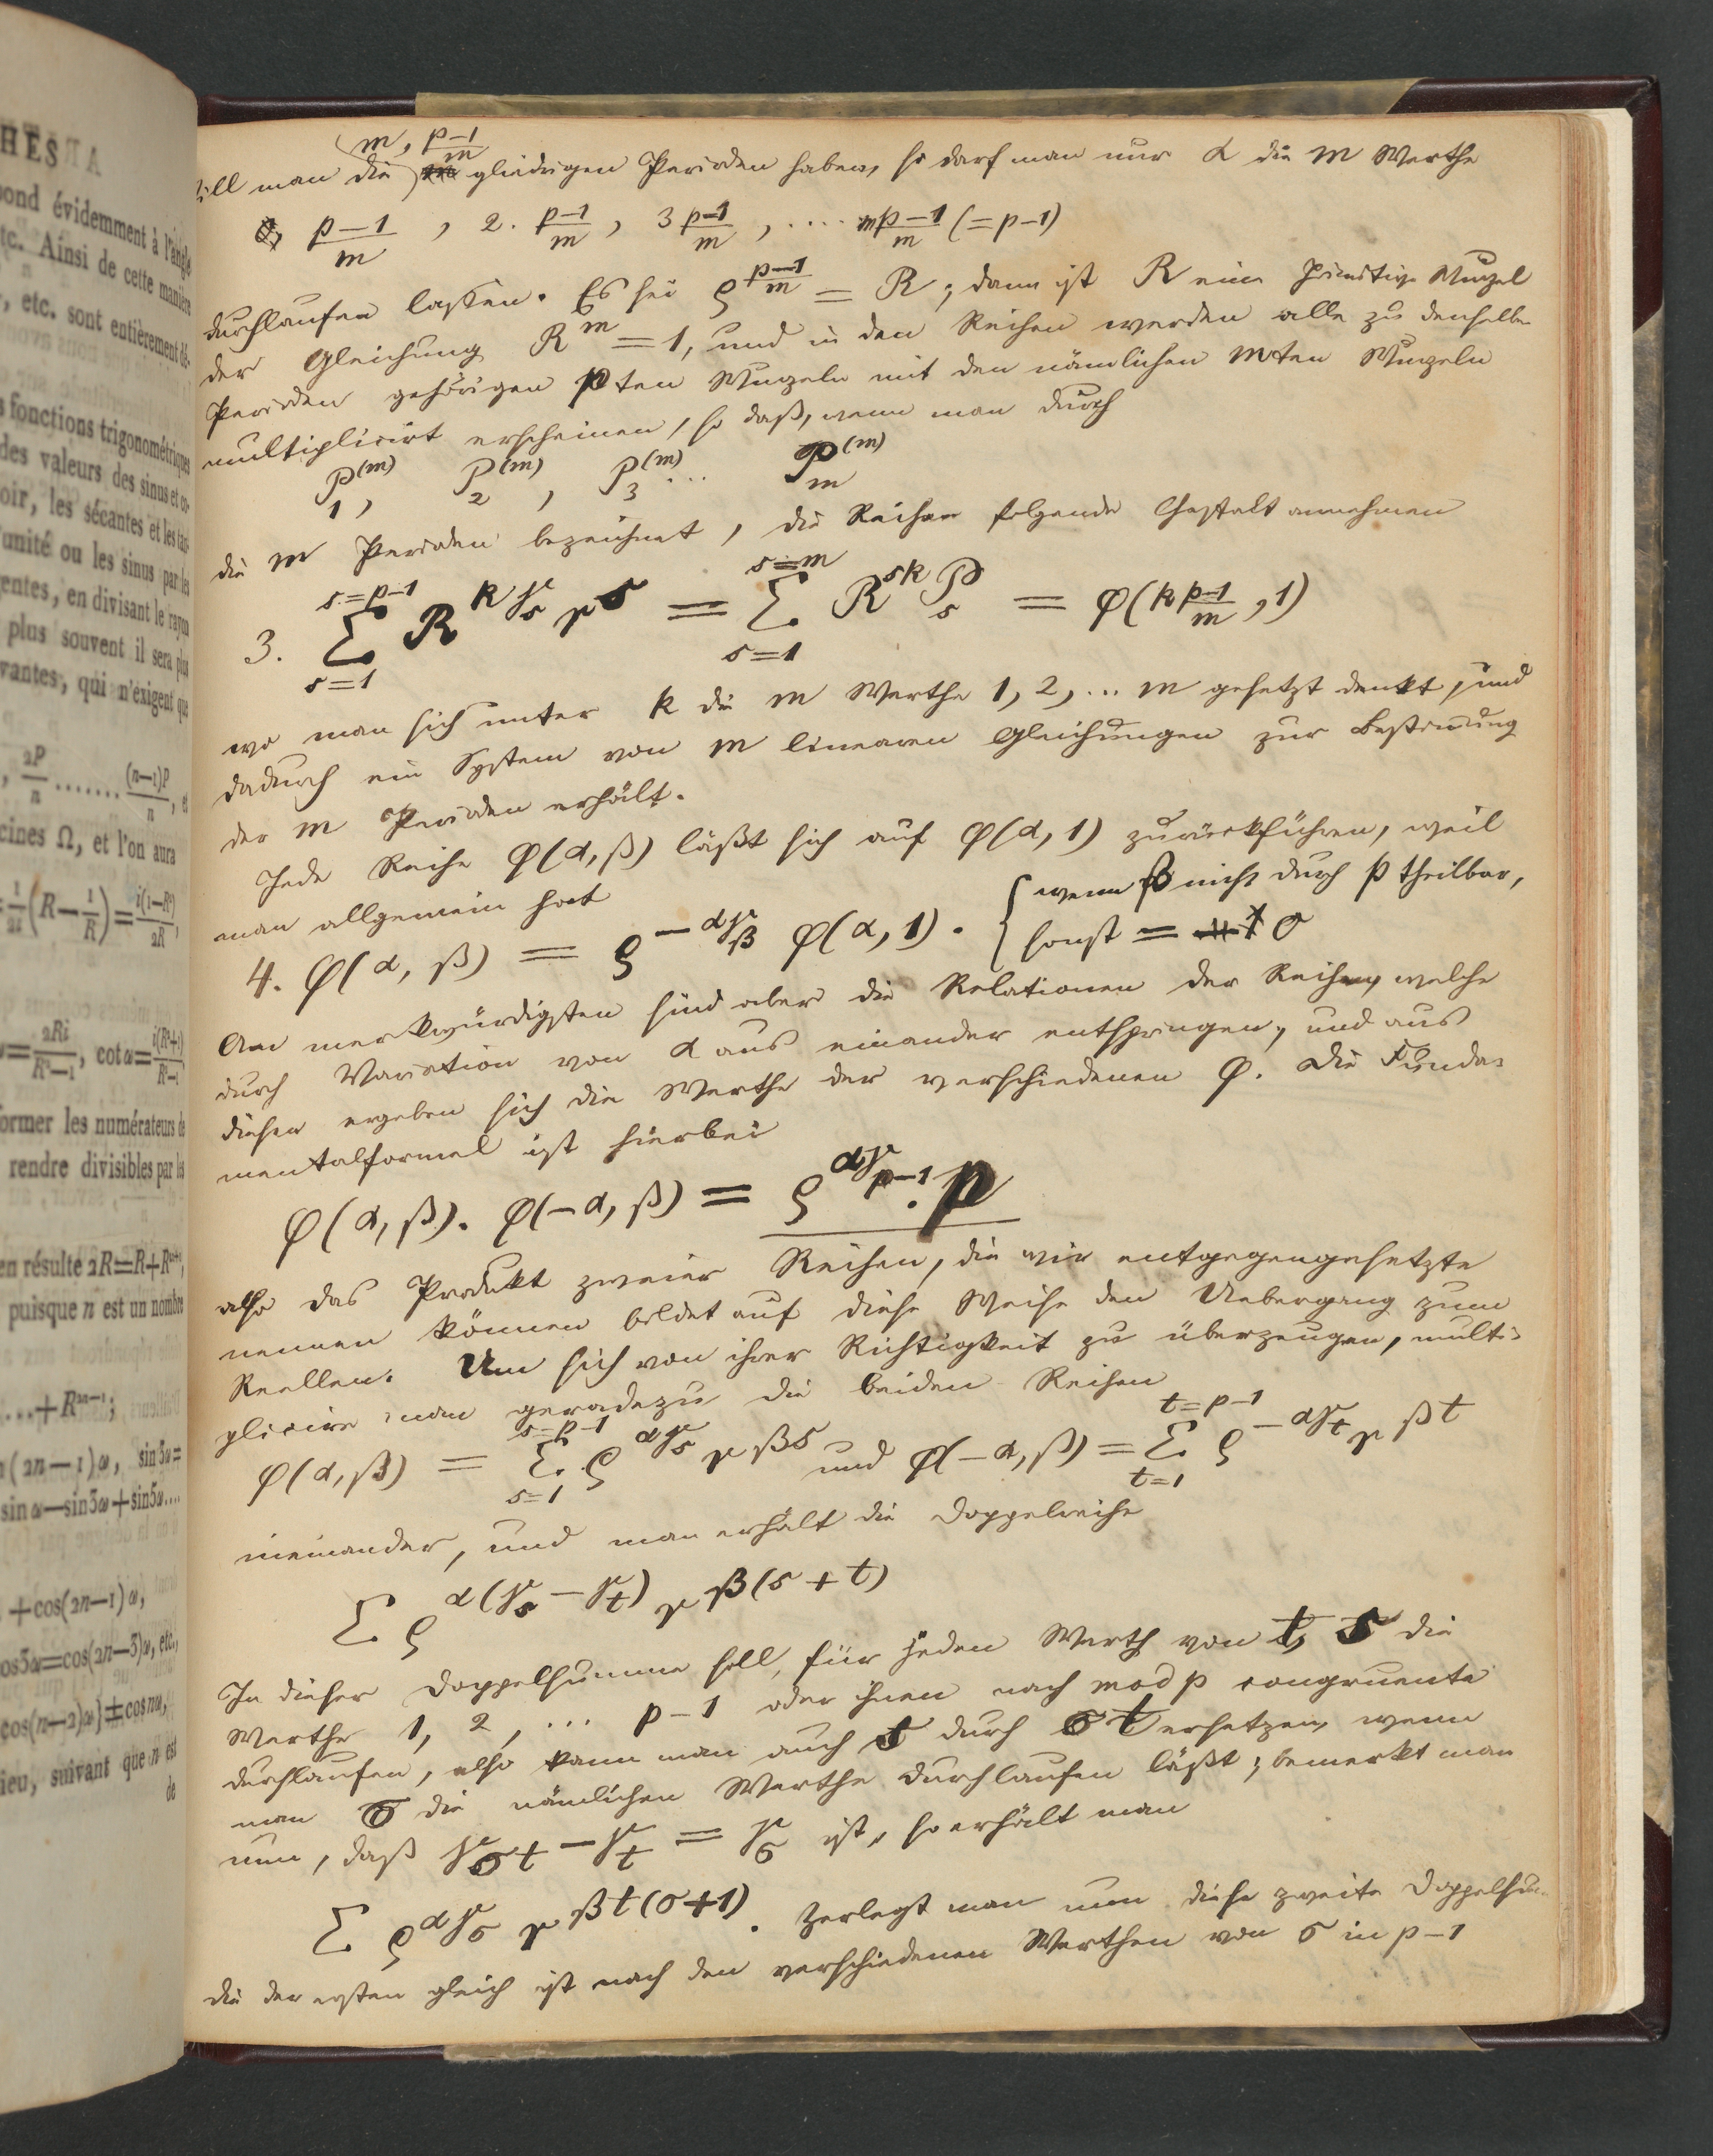 HESIA
pond évidemment à l'angle
etc. Ainsi de cette manière
, etc. sont entièrement dé-
s fonctions trigonométriques
des valeurs des sinus et co-
oir, les sécantes et les tan-
'unité ou les sinus par les
gentes, en divisant le rayon
plus souvent il sera plus
vantes, qui n'exigent que
, 2P/n ....... (n—1)P/n, et
cines Ω, et l'on aura
= 1/2i (R — 1/R) = i(1—R²)/2R,
= 2Ri/R²—1, cot ω = i(R²+1)/R²—1
former les numérateurs de
rendre divisibles par les
en résulte 2R=R+Rⁿ⁺¹,
puisque n est un nombre
...+R²ⁿ⁻¹;
n(2n—1)ω, sin3ω=
sinω—sin3ω+sin5ω....
+cos(2n—1)ω,
cos3ω=cos(2n—3)ω, etc.,
cos(n—2)ω}±cosnω,
lieu, suivant que n est
de
will man die (m, (p-1)/m gliedrigen Perioden haben, so darf man nur α die m Werthe
(p-1)/m, 2. (p-1)/m, 3 (p-1)/m, .... m (p-1)/m (= p-1)
durchlaufen lassen. Es sei ϱ^((p-1)/m) = R; dann ist R eine primitive Wurzel
der Gleichung R^m = 1, und in den Reihen werden alle zu denselben
Perioden gehörigen pten Wurzeln mit den nämlichen mten Wurzeln
multiplicirt erscheinen, so daß, wenn man durch
P₁^(m), P₂^(m), P₃^(m) ... P_m^(m)
die m Perioden bezeichnet, die Reihen folgende Gestalt annehmen
3. Σ_{s=1}^{s=p-1} R^{kγ_s} r^s = Σ_{s=1}^{s=m} R^{sk} P_s = φ(k (p-1)/m, 1)
wo man sich unter k die m Werthe 1, 2, ... m gesetzt denkt, und
dadurch ein System von m linearen Gleichungen zur Bestimmung
der m Perioden erhält.
Jede Reihe φ(α, β) läßt sich auf φ(α, 1) zurückführen, weil
man allgemein hat
4. φ(α, β) = ϱ^{-αγ_β} φ(α, 1). { wenn β nicht durch p theilbar,
sonst = 0
Am merkwürdigsten sind aber die Relationen der Reihen, welche
durch Variation von α aus einander entspringen, und aus
diesen ergeben sich die Werthe der verschiedenen φ. Die Funda-
mentalformel ist hierbei
φ(α, β). φ(-α, β) = ϱ^{αγ_{p-1}}. p
also das Produkt zweier Reihen, die wir entgegengesetzte
nennen können bildet auf diese Weise den Uebergang zum
Reellen. Um sich von ihrer Richtigkeit zu überzeugen, multi-
plicire man geradezu die beiden Reihen
φ(α, β) = Σ_{s=1}^{s=p-1} ϱ^{αγ_s} r^{βs} und φ(-α, β) = Σ_{t=1}^{t=p-1} ϱ^{-αγ_t} r^{βt}
ineinander, und man erhält die Doppelreihe
Σ ϱ^{α(γ_s - γ_t)} r^{β(s+t)}
In dieser Doppelsumme soll, für jeden Werth von t, s die
Werthe 1, 2, ... p-1 oder ihnen nach mod p congruente
durchlaufen, also kann man auch s durch σt ersetzen, wenn
man σ die nämlichen Werthe durchlaufen läßt; bemerkt man
nun, daß γ_{σt} - γ_t = γ_σ ist, so erhält man
Σ ϱ^{αγ_σ} r^{βt(σ+1)}. Zerlegt man nun diese zweite Doppelsum-
die der ersten gleich ist nach den verschiedenen Werthen von σ in p-1